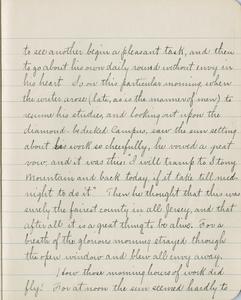 to see another begin a pleasant task, and then
to go about his own daily round without envy in
his heart. So on this particular morning when
the writer arose (late, as is the manner of men) to
resume his studies, and looking out upon the
diamond-bedecked Campus, saw the sun setting
about his work so cheerfully, he vowed a great
vow, and it was this: "I will tramp to Stony
Mountain and back today if it take till mid-
night to do it." Then he thought that this was
surely the fairest county in all Jersey, and that
after all it is a great thing to be alive. For a
breath of the glorious morning strayed through
the open window and blew all envy away.
How those morning hours of work did
fly! For at noon the sun seemed hardly to